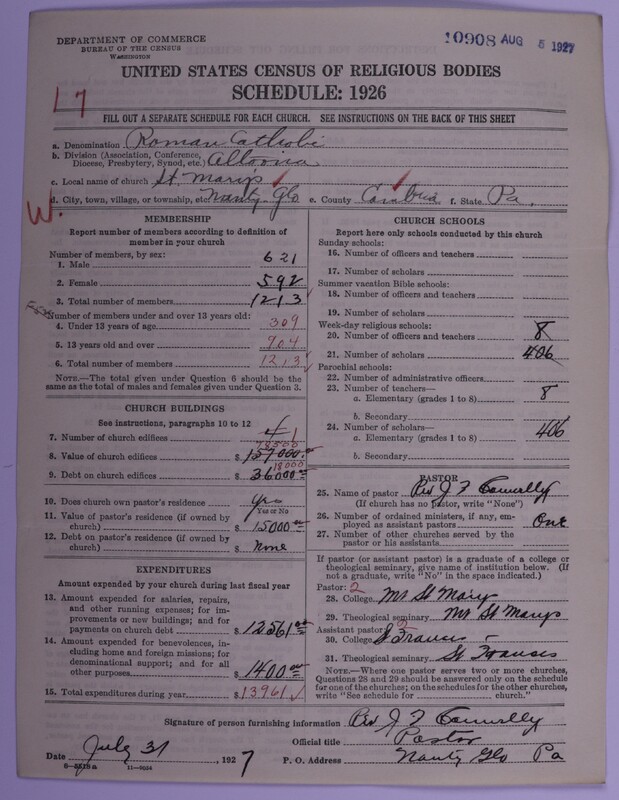 DEPARTMENT OF COMMERCE
BUREAU OF THE CENSUS
WASHINGTON
10908 AUG 5 1927
UNITED STATES CENSUS OF RELIGIOUS BODIES
SCHEDULE: 1926
L 7
FILL OUT A SEPARATE SCHEDULE FOR EACH CHURCH. SEE INSTRUCTIONS ON THE BACK OF THIS SHEET
a. Denomination Roman Catholic
b. Division (Association, Conference, Diocese, Presbytery, Synod, etc.) Altoona
c. Local name of church St. Mary's
d. City, town, village, or township, etc. Nanty Glo e. County Cambria f. State Pa.
W.
MEMBERSHIP
Report number of members according to definition of
member in your church
Number of members, by sex:
1. Male 621
2. Female 592
3. Total number of members 1213
Number of members under and over 13 years old:
4. Under 13 years of age 309
5. 13 years old and over 904
6. Total number of members 1213
NOTE.—The total given under Question 6 should be the
same as the total of males and females given under Question 3.
CHURCH BUILDINGS
See instructions, paragraphs 10 to 12
7. Number of church edifices 4 1
78500
8. Value of church edifices $ 157000.00
18000
9. Debt on church edifices $ 36000.00
10. Does church own pastor's residence Yes
Yes or No
11. Value of pastor's residence (if owned by
church) $ 15000.00
12. Debt on pastor's residence (if owned by
church) $ None
EXPENDITURES
Amount expended by your church during last fiscal year
13. Amount expended for salaries, repairs,
and other running expenses; for im-
provements or new buildings; and for
payments on church debt $ 12561.00
14. Amount expended for benevolences, in-
cluding home and foreign missions; for
denominational support; and for all
other purposes $ 1400.00
15. Total expenditures during year $ 13961
CHURCH SCHOOLS
Report here only schools conducted by this church
Sunday schools:
16. Number of officers and teachers
17. Number of scholars
Summer vacation Bible schools:
18. Number of officers and teachers
19. Number of scholars
Week-day religious schools:
20. Number of officers and teachers 8
21. Number of scholars 406
Parochial schools:
22. Number of administrative officers
23. Number of teachers—
a. Elementary (grades 1 to 8) 8
b. Secondary
24. Number of scholars—
a. Elementary (grades 1 to 8) 406
b. Secondary
PASTOR
25. Name of pastor Rev J F Connelly
(If church has no pastor, write "None")
26. Number of ordained ministers, if any, em-
ployed as assistant pastors One
27. Number of other churches served by the
pastor or his assistants
If pastor (or assistant pastor) is a graduate of a college or
theological seminary, give name of institution below. (If
not a graduate, write "No" in the space indicated.)
Pastor: 2
28. College Mt St Marys
29. Theological seminary Mt St Marys
Assistant pastor: 2
30. College St Francis
31. Theological seminary St Francis
NOTE.—Where one pastor serves two or more churches,
Questions 28 and 29 should be answered only on the schedule
for one of the churches; on the schedules for the other churches,
write "See schedule for church."
Signature of person furnishing information Rev J F Connelly
Official title Pastor
Date July 31, 1927 P. O. Address Nanty Glo Pa
8-5518a 11-9034